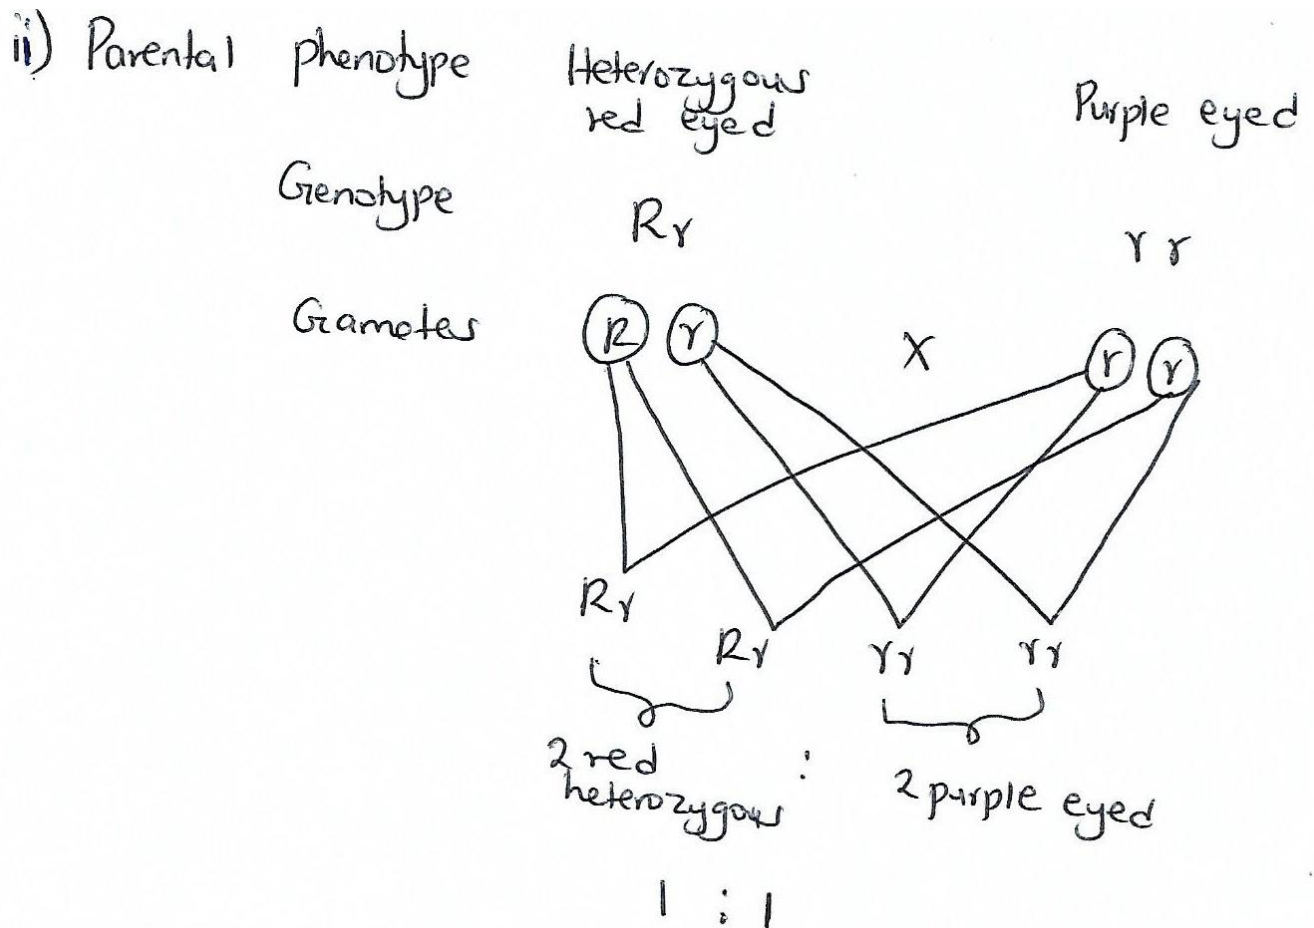 ii) Parental phenotype Heterozygous red eyed Purple eyed
Genotype Rr rr
Gametes R r X r r
Rr Rr rr rr
2 red heterozygous : 2 purple eyed
1 : 1